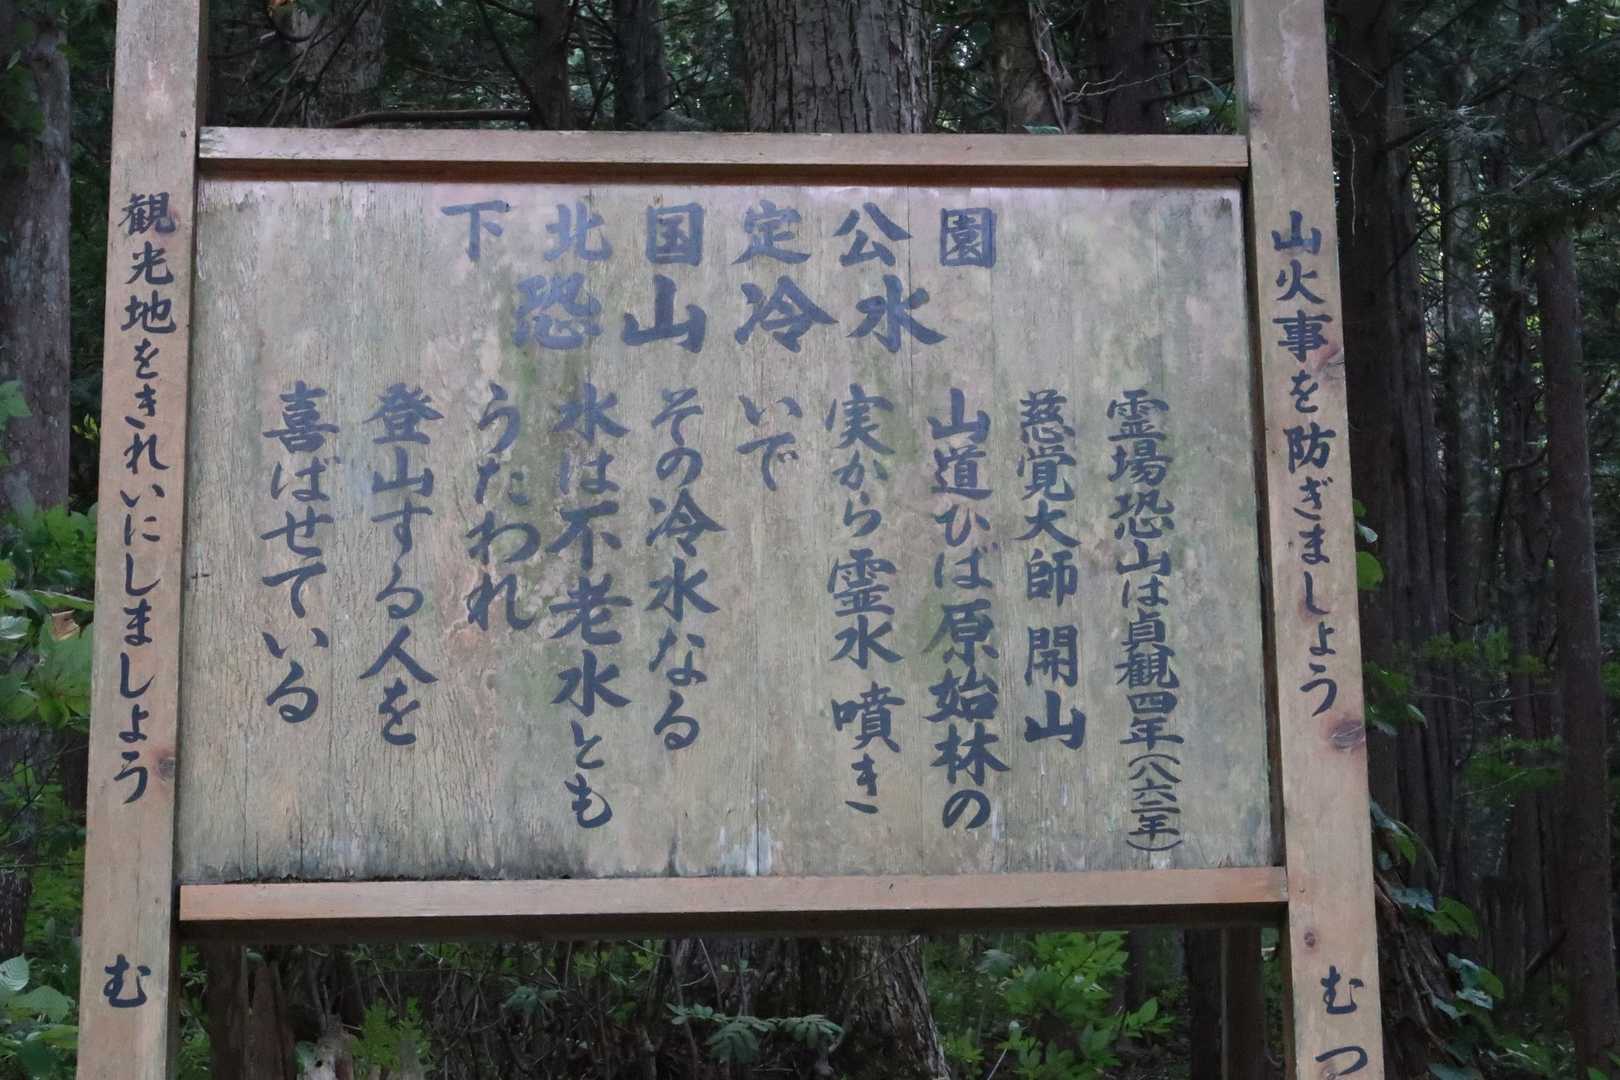 下北国定公園
恐山冷水
霊場恐山は貞観四年(八六二年)
慈覚大師開山
山道ひば原始林の
実から霊水噴き
いで
その冷水なる
水は不老水とも
うたわれ
登山する人を
喜ばせている
山火事を防ぎましょう
むつ
観光地をきれいにしましょう
む